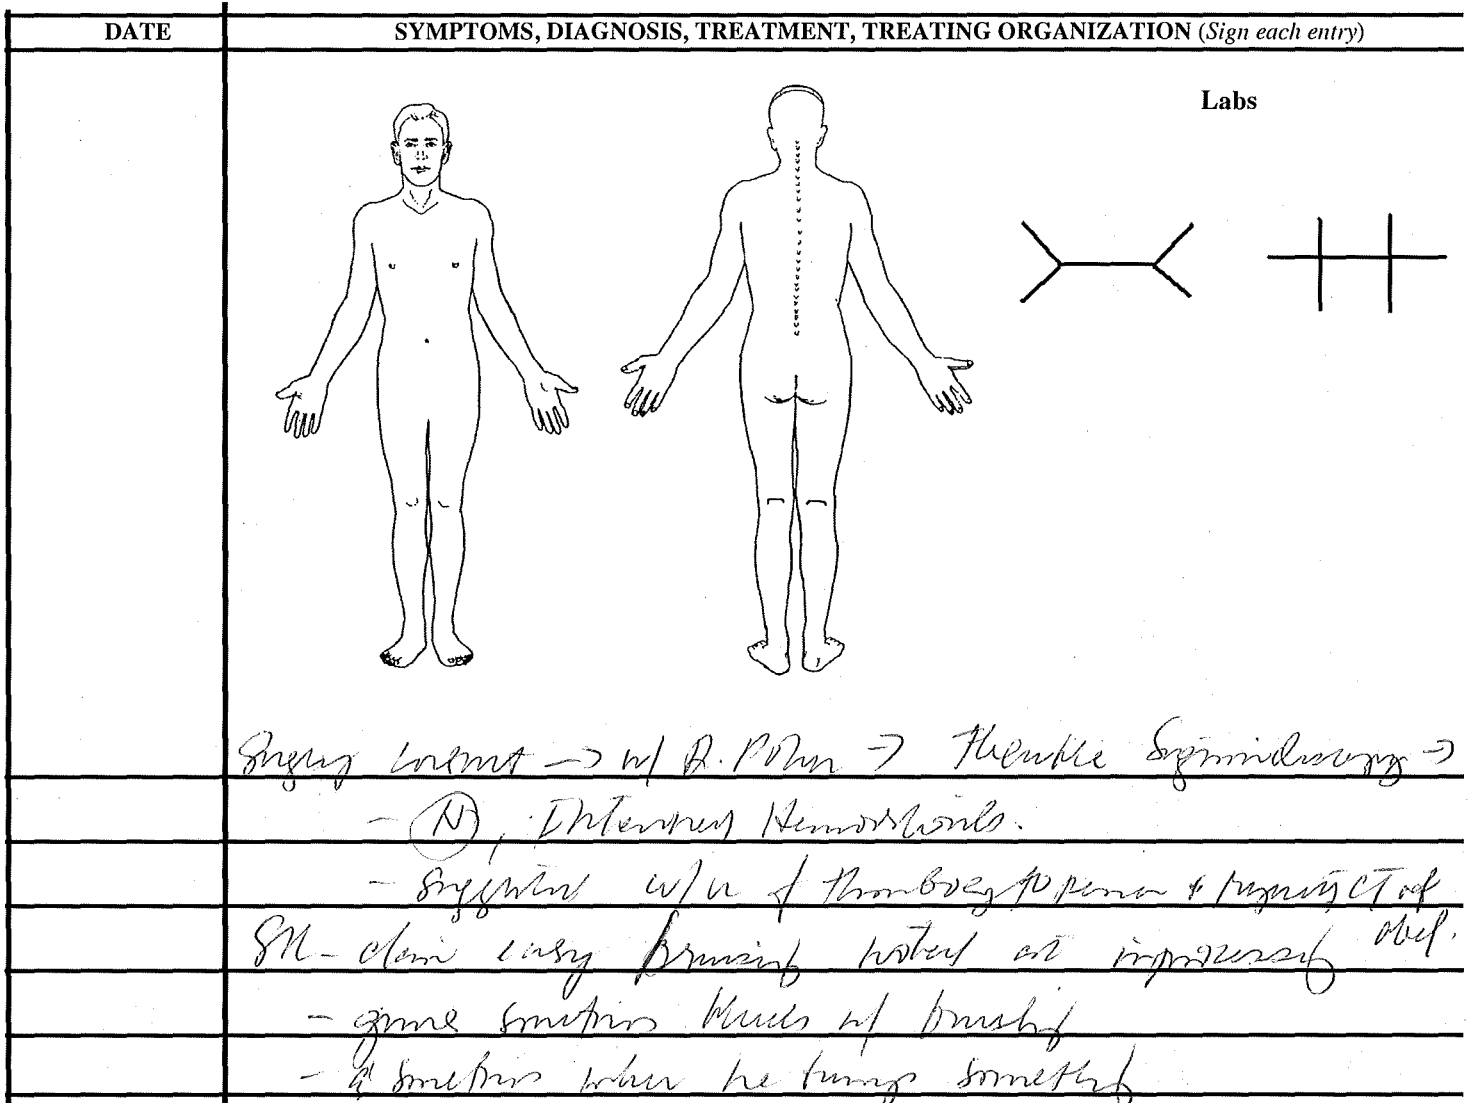 DATE
SYMPTOMS, DIAGNOSIS, TREATMENT, TREATING ORGANIZATION (Sign each entry)
Labs
Surgery consult → w/ → Flexible Sigmoidoscopy →
- (N), Internal Hemorrhoids.
- Suggested w/u of thrombocytopenia & CT of
abd.
easy Bruising noted at
- gums sometimes bleeds w/ brushing
- sometimes when he